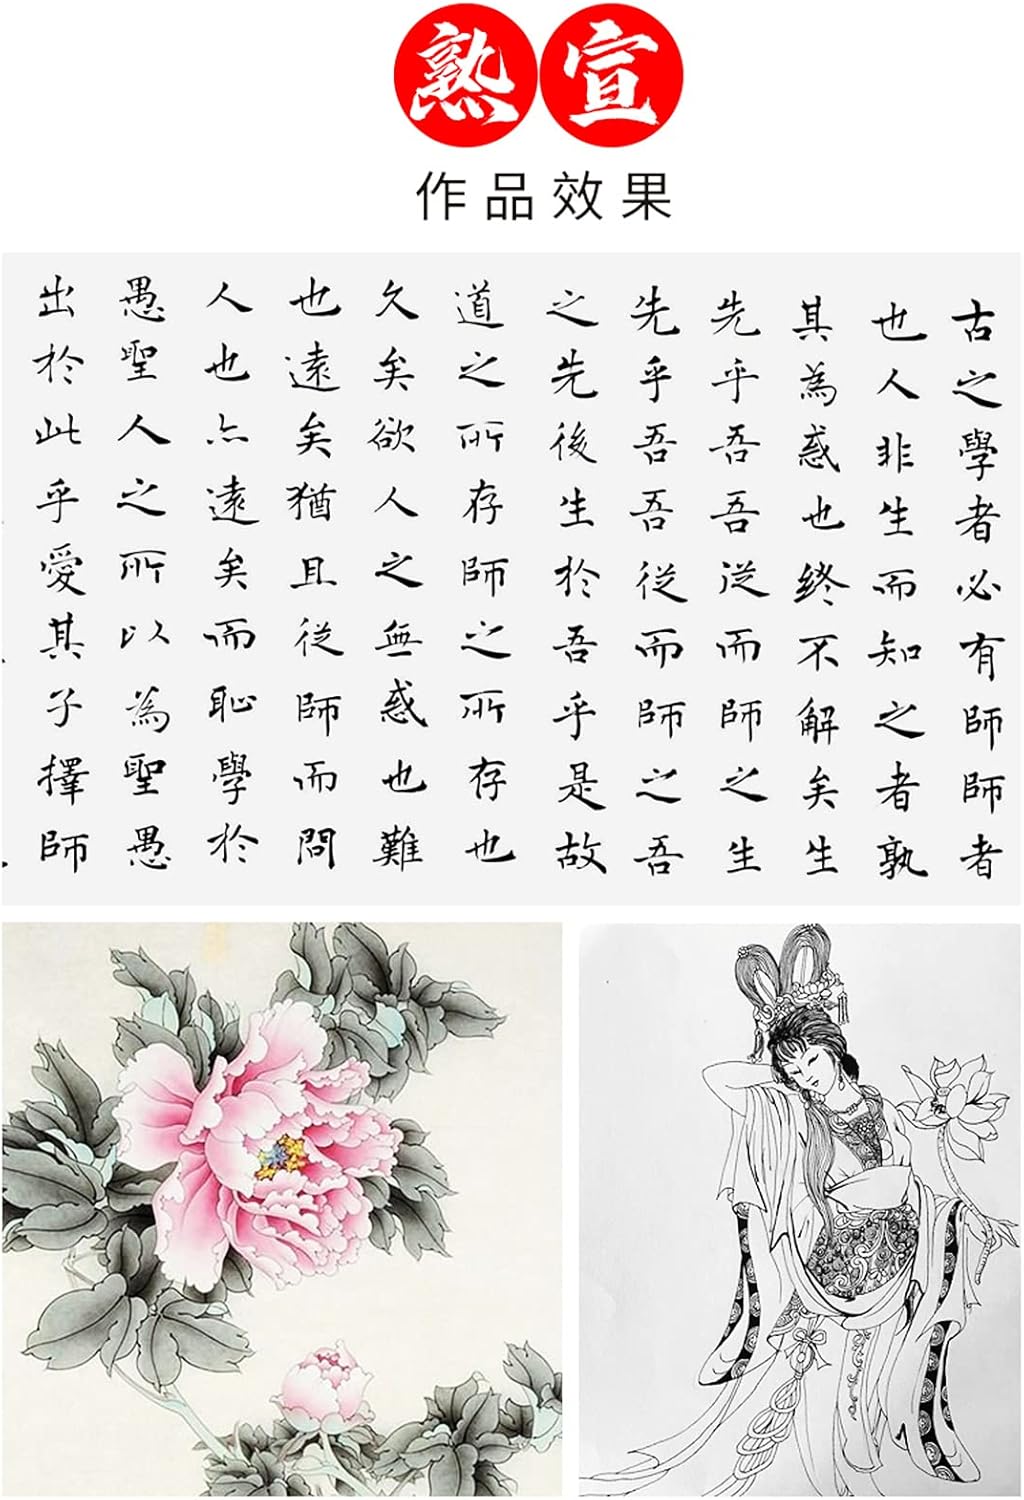 熟宣
作品效果
古之學者必有師師者
也人非生而知之者孰
其為惑也終不解矣生
先乎吾吾從而師之生
先乎吾吾從而師之吾
之先後生於吾乎是故
道之所存師之所存也
久矣欲人之無惑也難
也遠矣猶且從師而問
人也亦遠矣而恥學於
愚聖人之所以為聖愚
出於此乎愛其子擇師